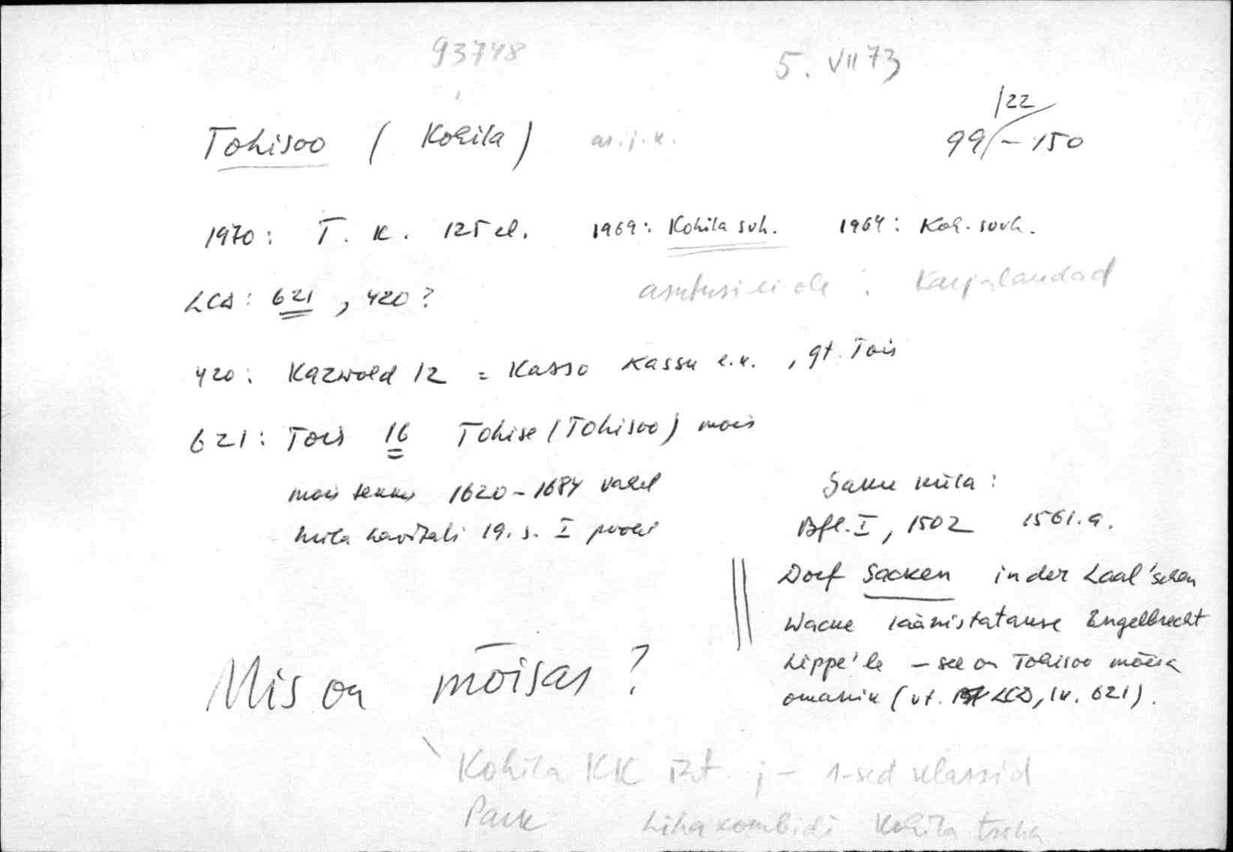 93748
5. VII 73
Tohisoo ( Kohila ) as. j. k.
/22
99/-150
1970: T. k. 125 el. 1969: Kohila svh. 1964: Koh. sovh.
LCD: 621, 420?
asutusi ei ole : Karjalaudad
420: Kazwold 12 = Kasso Kassu e.k., gt. Tois
621: Tois 16 Tohise (Tohisoo) mois
mois tekkis 1620-1684 vahel
küla hävitati 19. s. I poolel
Saku küla:
Bfl. I, 1502 1561. a.
Dorf Sacken in der Laal'schen
Wacke läänistatakse Engelbrecht
Lippe'le - see on Tohisoo mõisa
omanik (vt. LCD, lk. 621).
Mis on mõisas?
Kohila KK Int. j- 1-sed klassid
Park Lihakombi Kohila tsehh